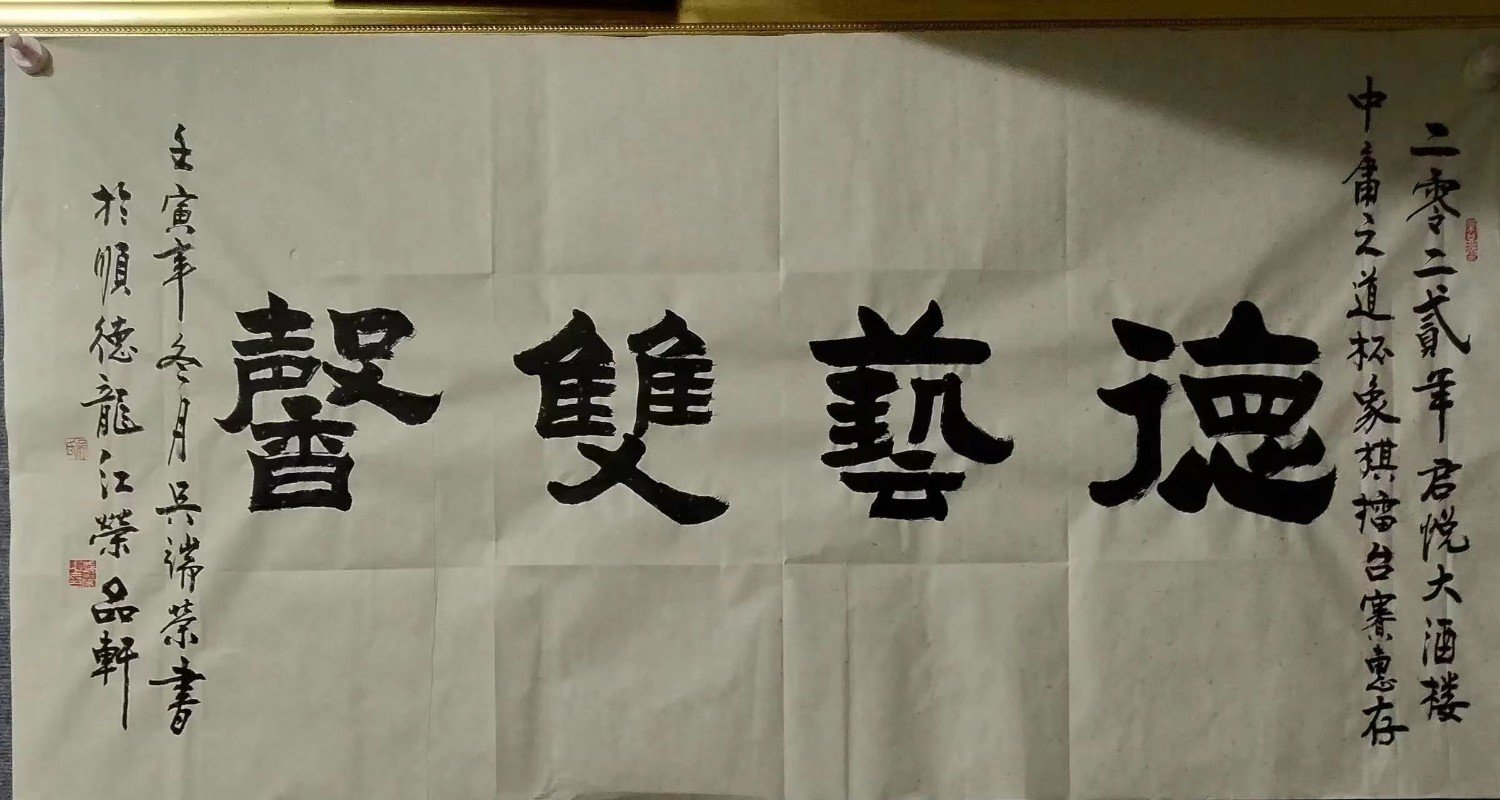 二零二貳年君悦大酒楼
中庸之道杯象棋擂台赛惠存
德藝雙馨
壬寅年冬月吴端榮書
於順德龍江榮品軒